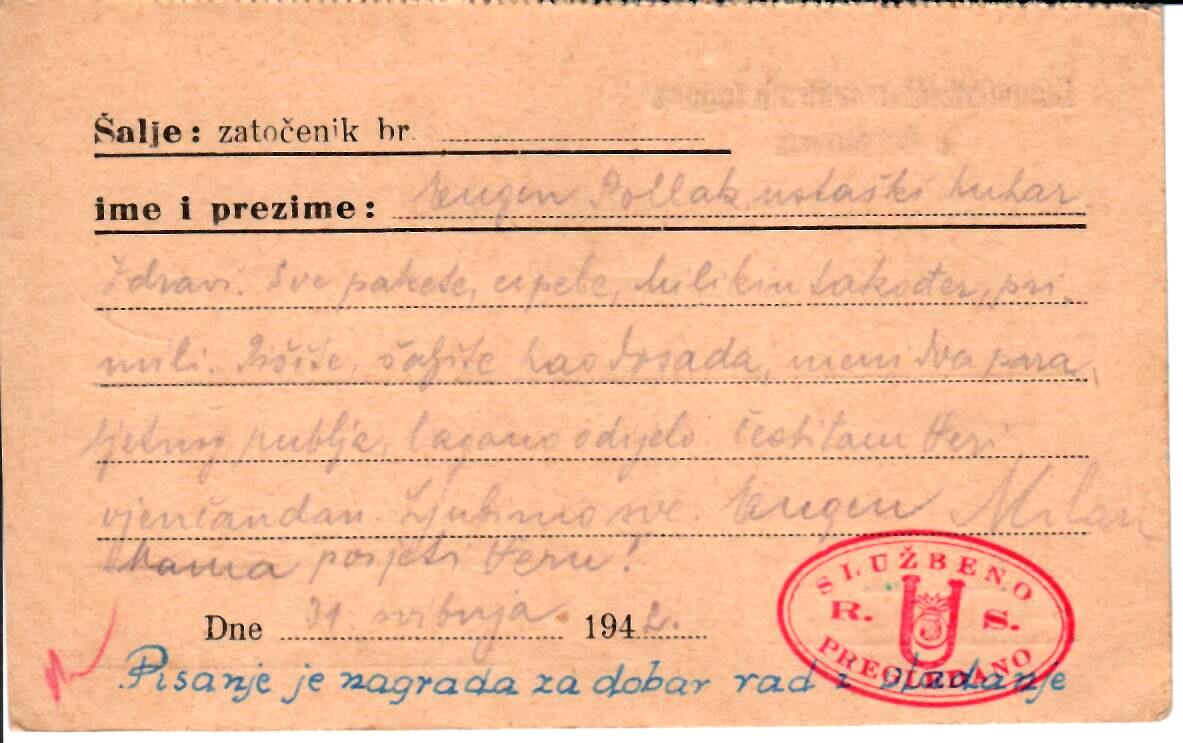 Šalje: zatočenik br.
ime i prezime: Eugen Pollak, ustaški kuhar
Zdravi. Sve pakete, cipele, Milikin također, pri-
mili. Pišite, šaljite kao dosada, meni dva para
ljetnog rublja, lagano odijelo. Čestitam Veri
vjenčandan. Ljubimo sve. Eugen Milan
Mama posjeti Veru!
Dne 31. svibnja 1942.
Pisanje je nagrada za dobar rad i vladanje
SLUŽBENO
R. U S.
PREGLEDANO